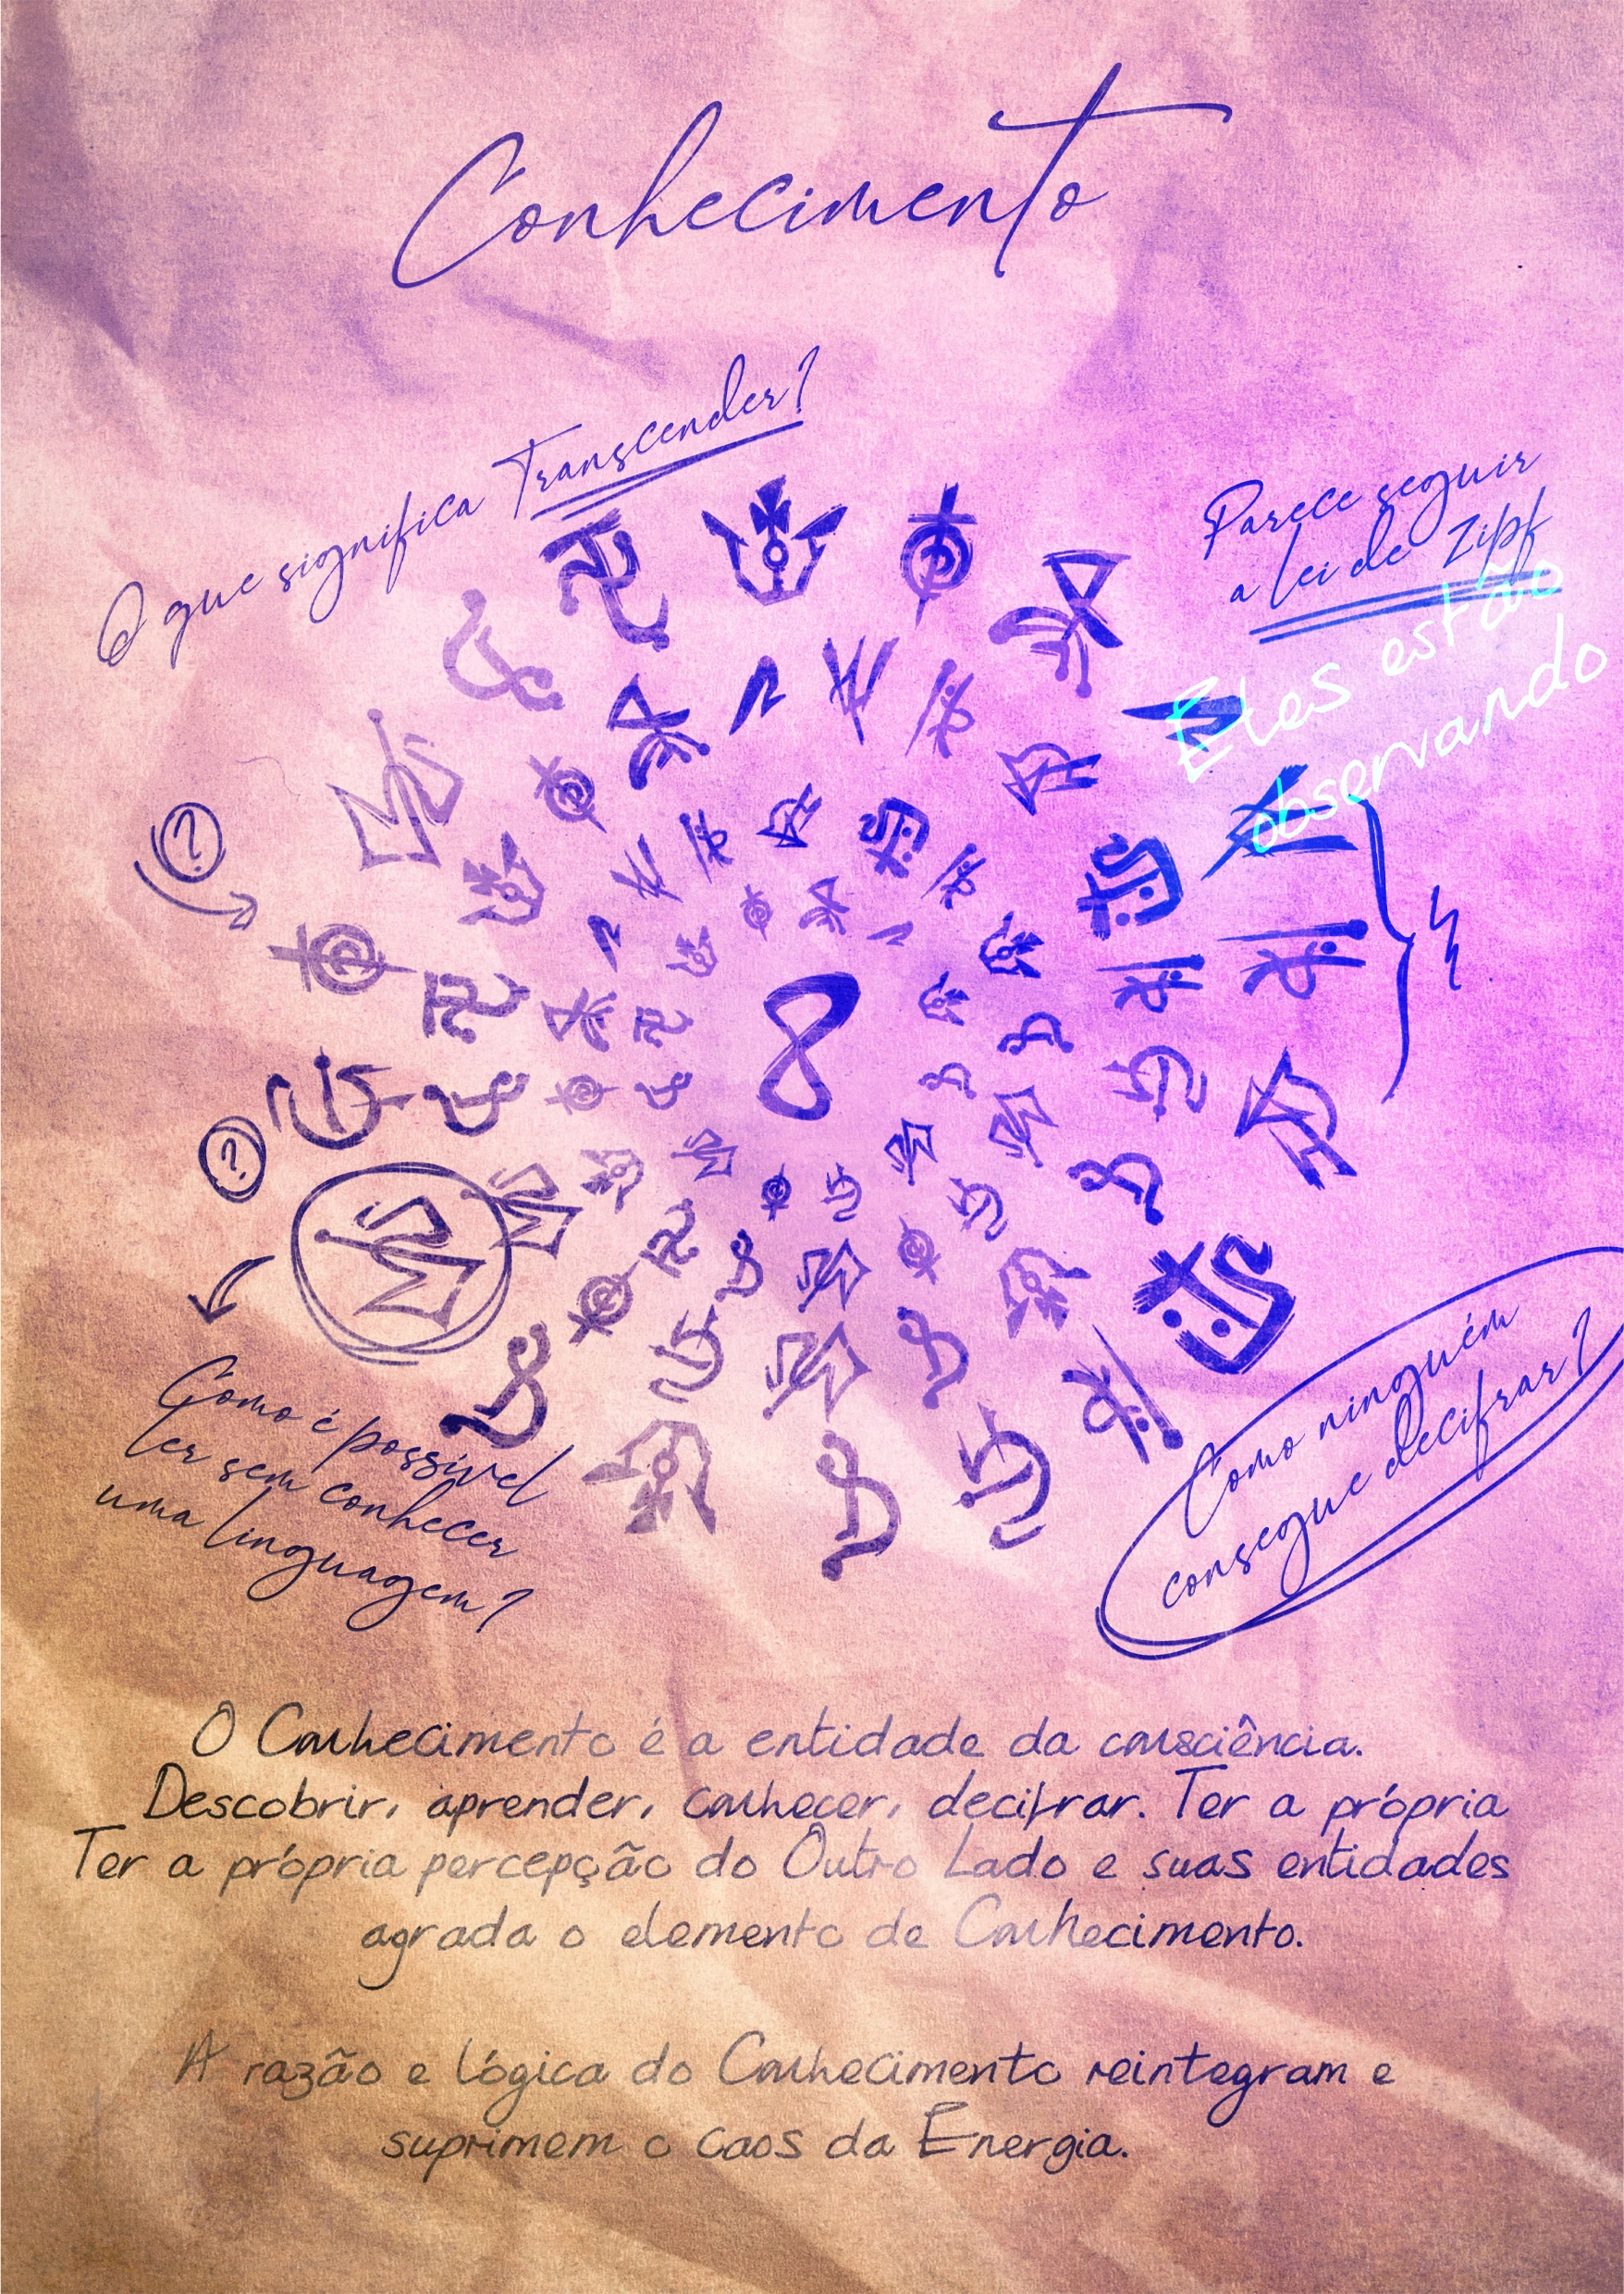 Conhecimento
O que significa Transcender?
Parece seguir
a lei de Zipf
Eles estão
observando
?
8
?
Como é possível
ler sem conhecer
uma linguagem?
Como ninguém
consegue decifrar?
O Conhecimento é a entidade da consciência.
Descobrir, aprender, conhecer, decifrar. Ter a própria
Ter a própria percepção do Outro Lado e suas entidades
agrada o elemento de Conhecimento.
A razão e lógica do Conhecimento reintegram e
suprimem o caos da Energia.